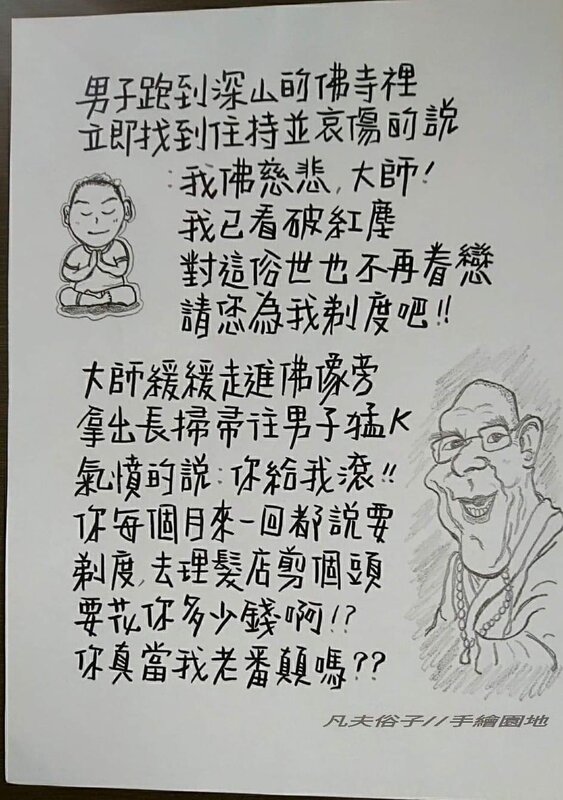 男子跑到深山的佛寺裡
立即找到住持並哀傷的說
:我佛慈悲,大師!
我已看破紅塵
對這俗世也不再眷戀
請您為我剃度吧!!
大師緩緩走進佛像旁
拿出長掃帚往男子猛K
氣憤的說:你給我滾!!
你每個月來一回都說要
剃度,去理髮店剪個頭
要花你多少錢啊!?
你真當我老番顛嗎??
凡夫俗子//手繪園地